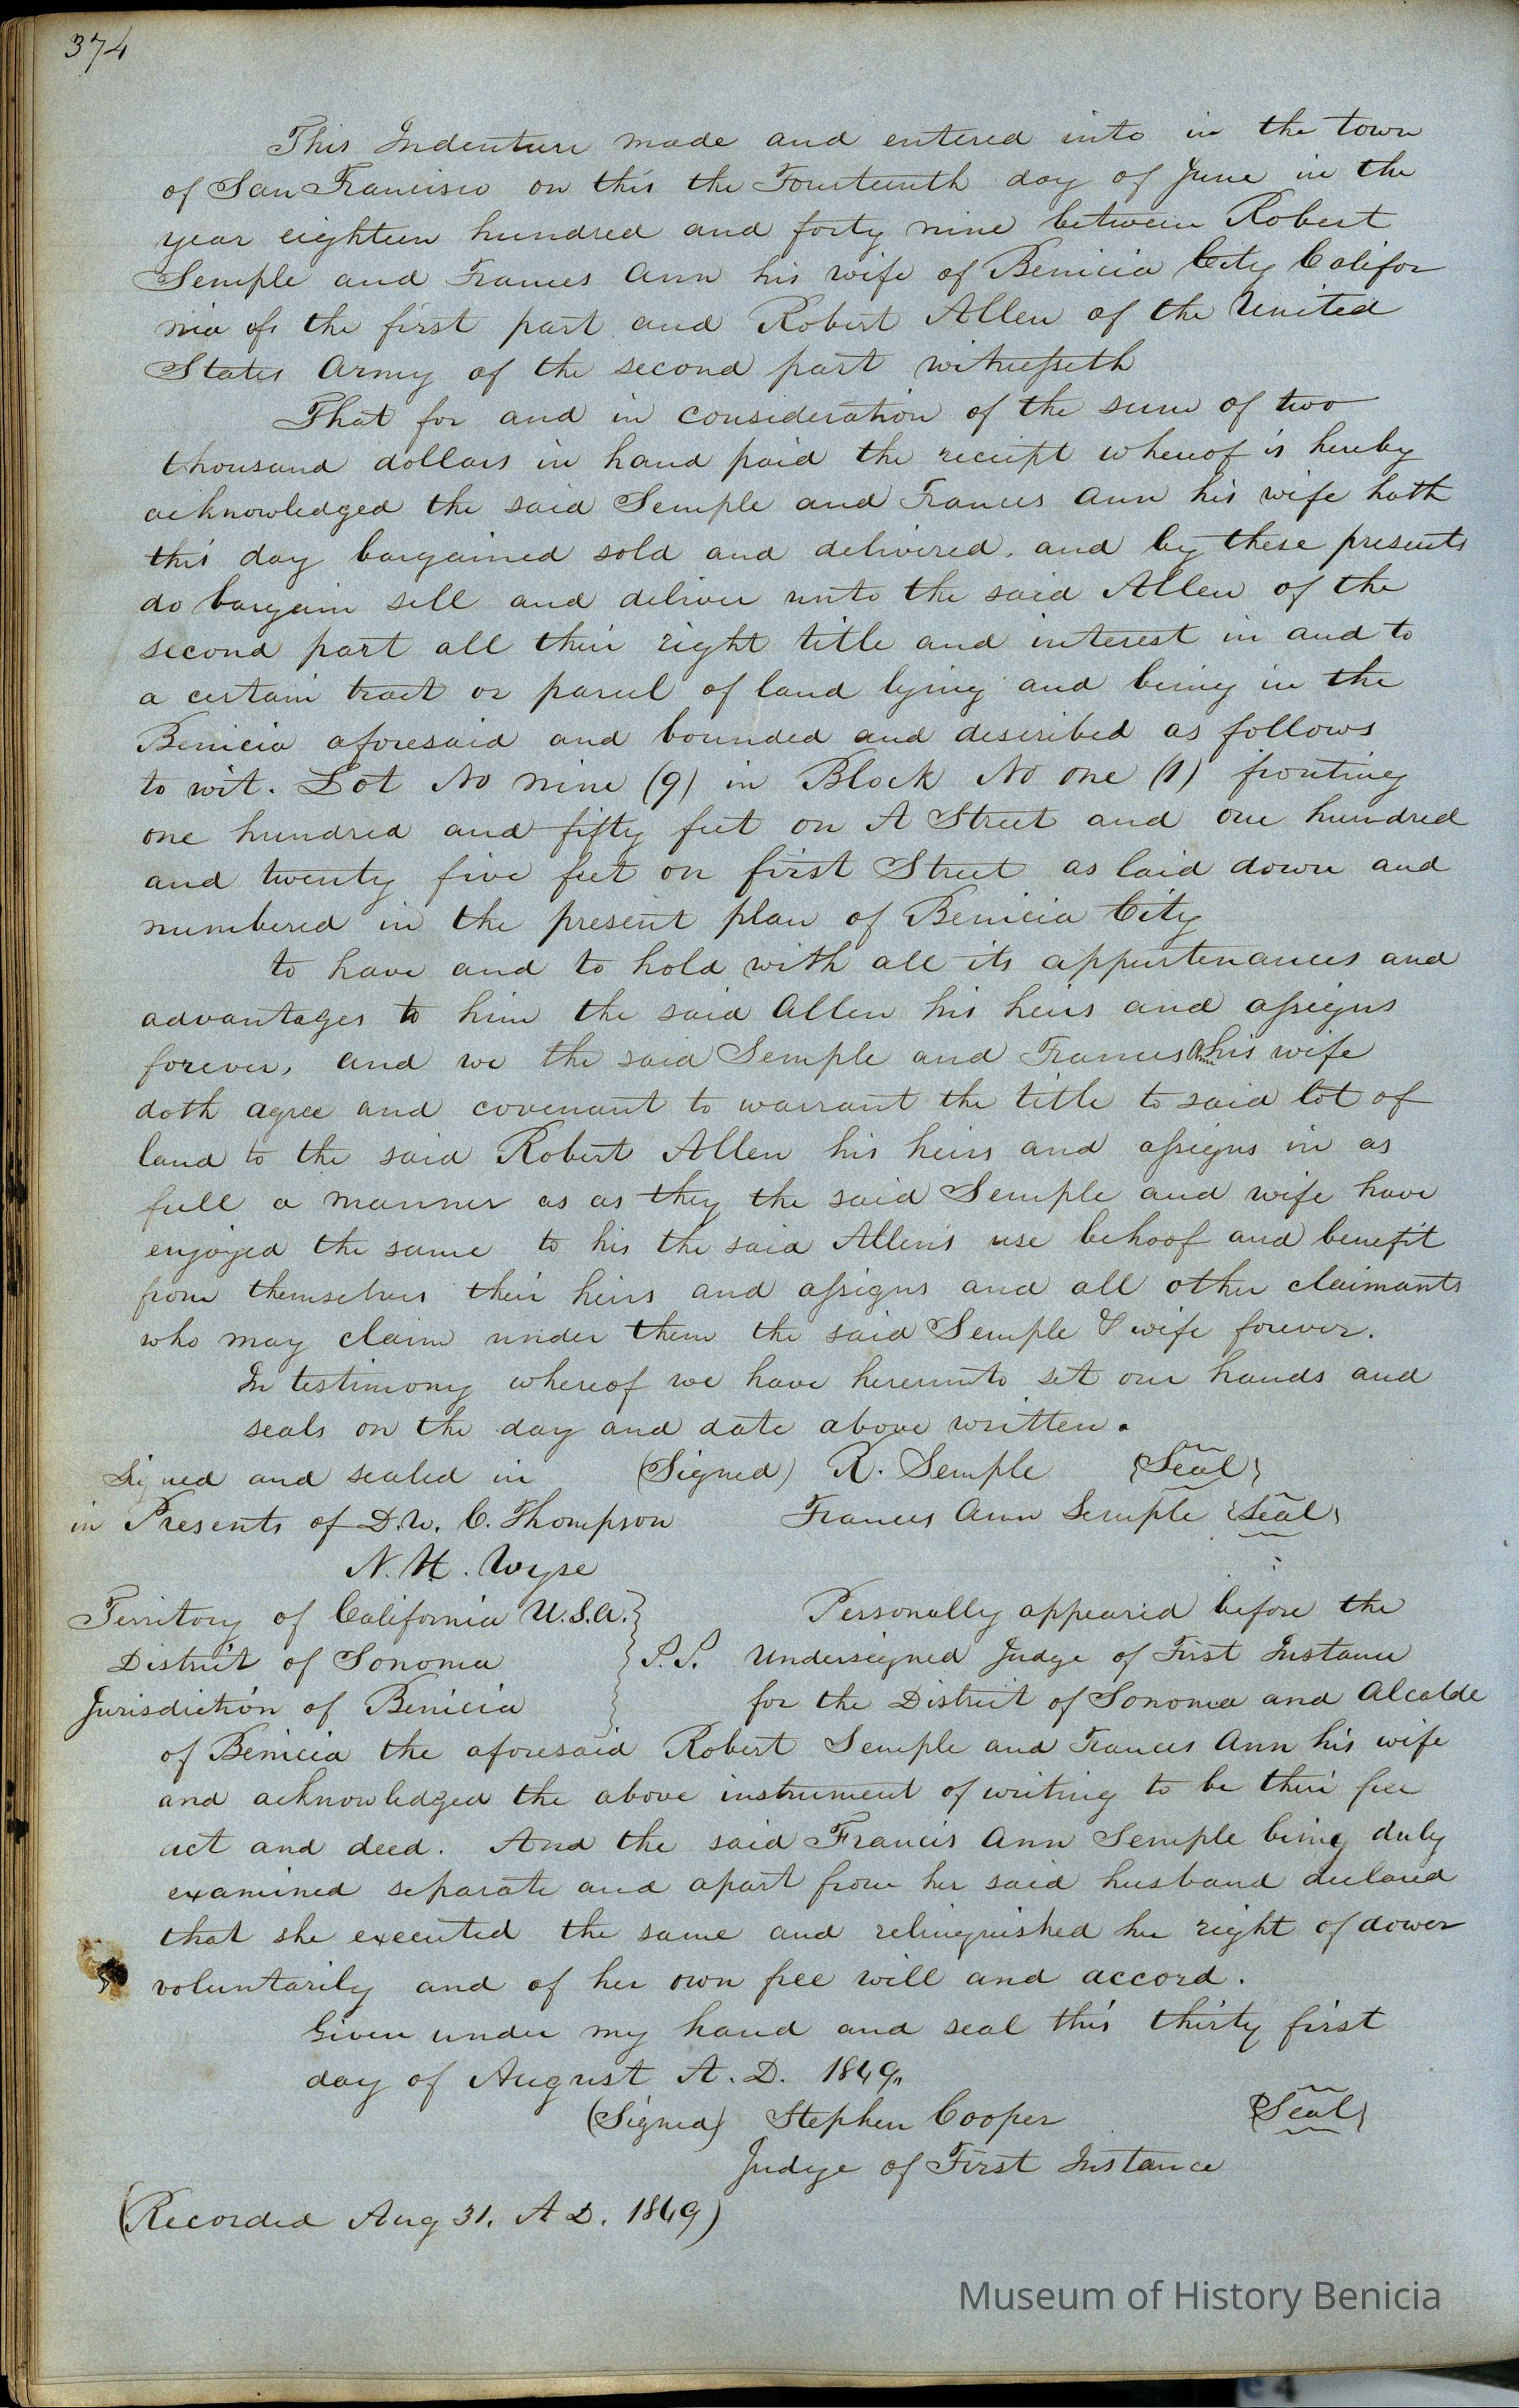 374
This Indenture made and entered into in the town
of San Francisco on this the Fourteenth day of June in the
year eighteen hundred and forty nine between Robert
Semple and Frances Ann his wife of Benicia City Califor
nia of the first part and Robert Allen of the United
States Army of the second part witnesseth
That for and in consideration of the sum of two
thousand dollars in hand paid the receipt whereof is hereby
acknowledged the said Semple and Frances Ann his wife hath
this day bargained sold and delivered, and by these presents
do bargain sell and deliver unto the said Allen of the
second part all their right title and interest in and to
a certain tract or parcel of land lying and being in the
Benicia aforesaid and bounded and described as follows
to wit. Lot No nine (9) in Block No one (1) fronting
one hundred and fifty feet on A Street and one hundred
and twenty five feet on first Street as laid down and
numbered in the present plan of Benicia City
to have and to hold with all its appurtenances and
advantages to him the said Allen his heirs and assigns
forever, and we the said Semple and Frances Ann his wife
doth agree and covenant to warrant the title to said lot of
land to the said Robert Allen his heirs and assigns in as
full a manner as as they the said Semple and wife have
enjoyed the same to his the said Allen's use behoof and benefit
from themselves their heirs and assigns and all other claimants
who may claim under them the said Semple & wife forever.
In testimony whereof we have hereunto set our hands and
seals on the day and date above written.
Signed and sealed in (Signed) R. Semple {Seal}
in Presents of D.W. C. Thompson Frances Ann Semple {Seal}
N. H. Wyse
Territory of California U.S.A.} Personally appeared before the
District of Sonoma } S.S. Undersigned Judge of First Instance
Jurisdiction of Benicia } for the District of Sonoma and Alcalde
of Benicia the aforesaid Robert Semple and Frances Ann his wife
and acknowledged the above instrument of writing to be their free
act and deed. And the said Francis Ann Semple being duly
examined separate and apart from her said husband declared
that she executed the same and relinquished her right of dower
voluntarily and of her own free will and accord.
Given under my hand and seal this thirty first
day of August A. D. 1849.
(Signed) Stephen Cooper {Seal}
Judge of First Instance
(Recorded Aug 31. A D. 1849)
Museum of History Benicia